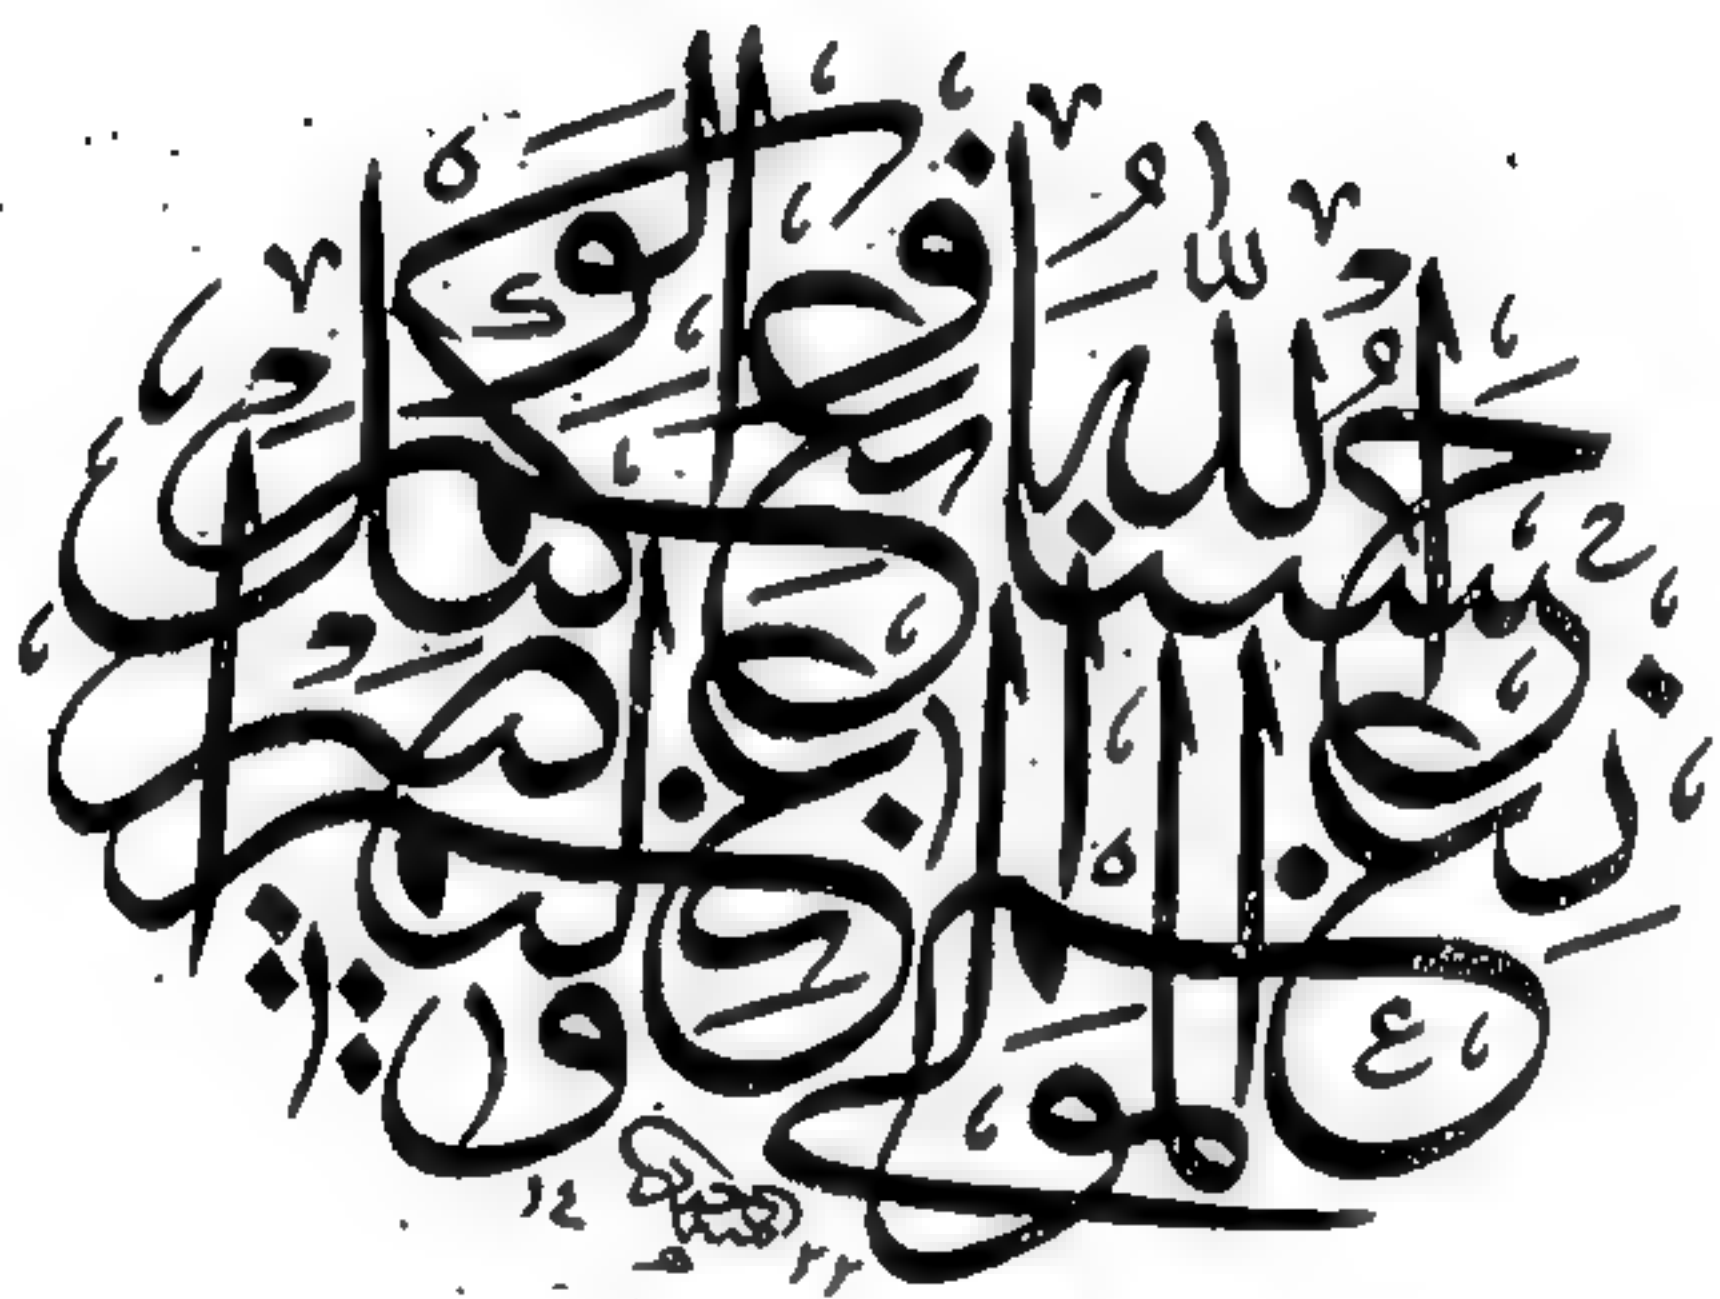 حسبنا الله ونعم الوكيل
نعم المولى ونعم النصير
١٤٢٢ هـ